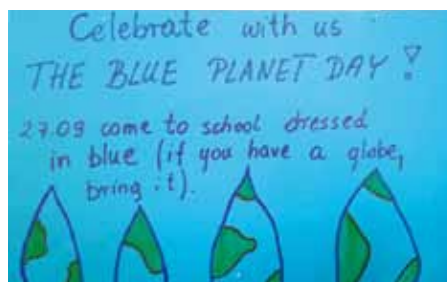 Celebrate with us
THE BLUE PLANET DAY!
27.09 come to school dressed
in blue (if you have a globe,
bring it).